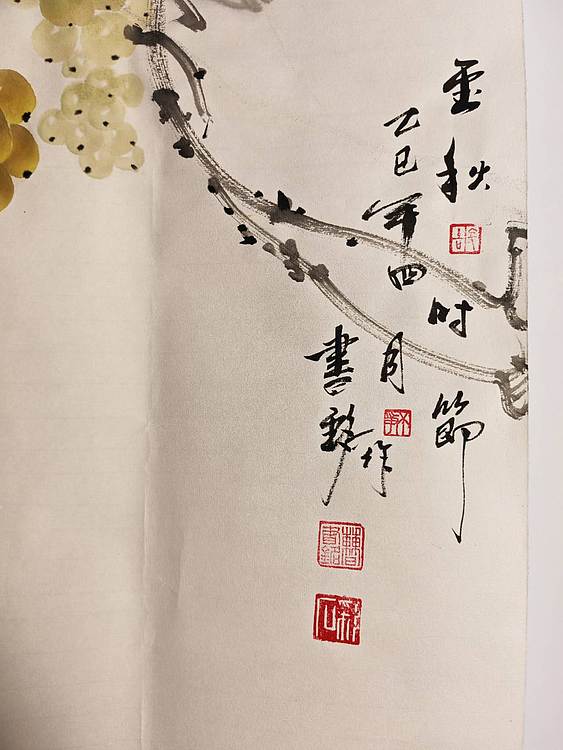 金秋时節
乙巳年四月作
書銘